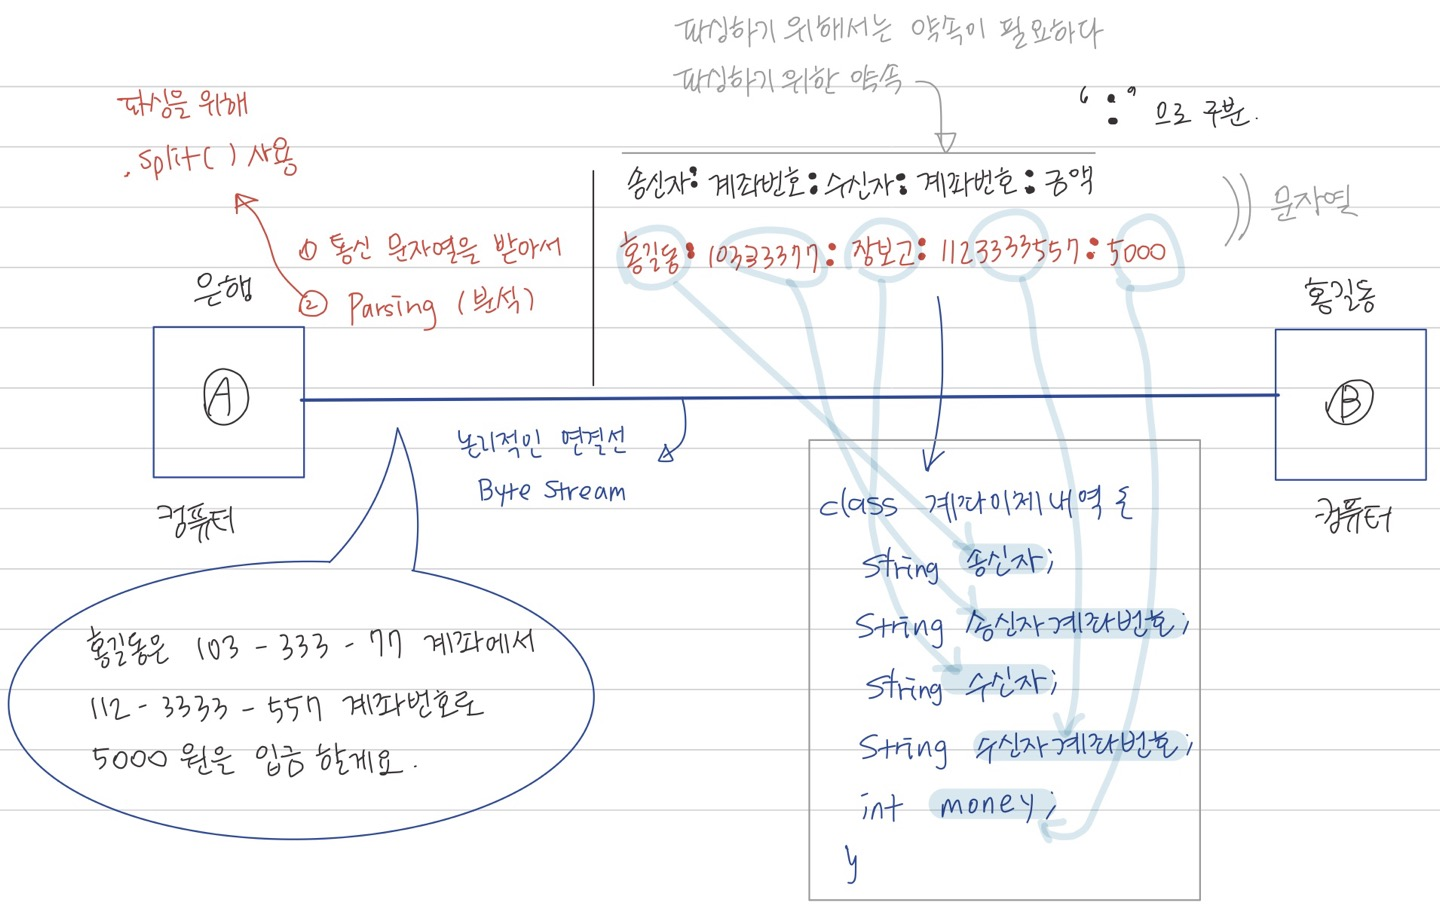 파싱하기 위해서는 약속이 필요하다
파싱하기 위한 약속
":" 으로 구분.
파싱을 위해
.split( ) 사용
송신자: 계좌번호: 수신자: 계좌번호: 금액
문자열
① 통신 문자열을 받아서
홍길동: 10333377: 장보고: 1123333557: 5000
② Parsing (분석)
은행
홍길동
A
B
논리적인 연결선
Byte Stream
컴퓨터
컴퓨터
class 계좌이체내역 {
String 송신자;
String 송신자계좌번호;
String 수신자;
String 수신자계좌번호;
int money;
}
홍길동은 103 - 333 - 77 계좌에서
112 - 3333 - 557 계좌번호로
5000 원을 입금 할게요.